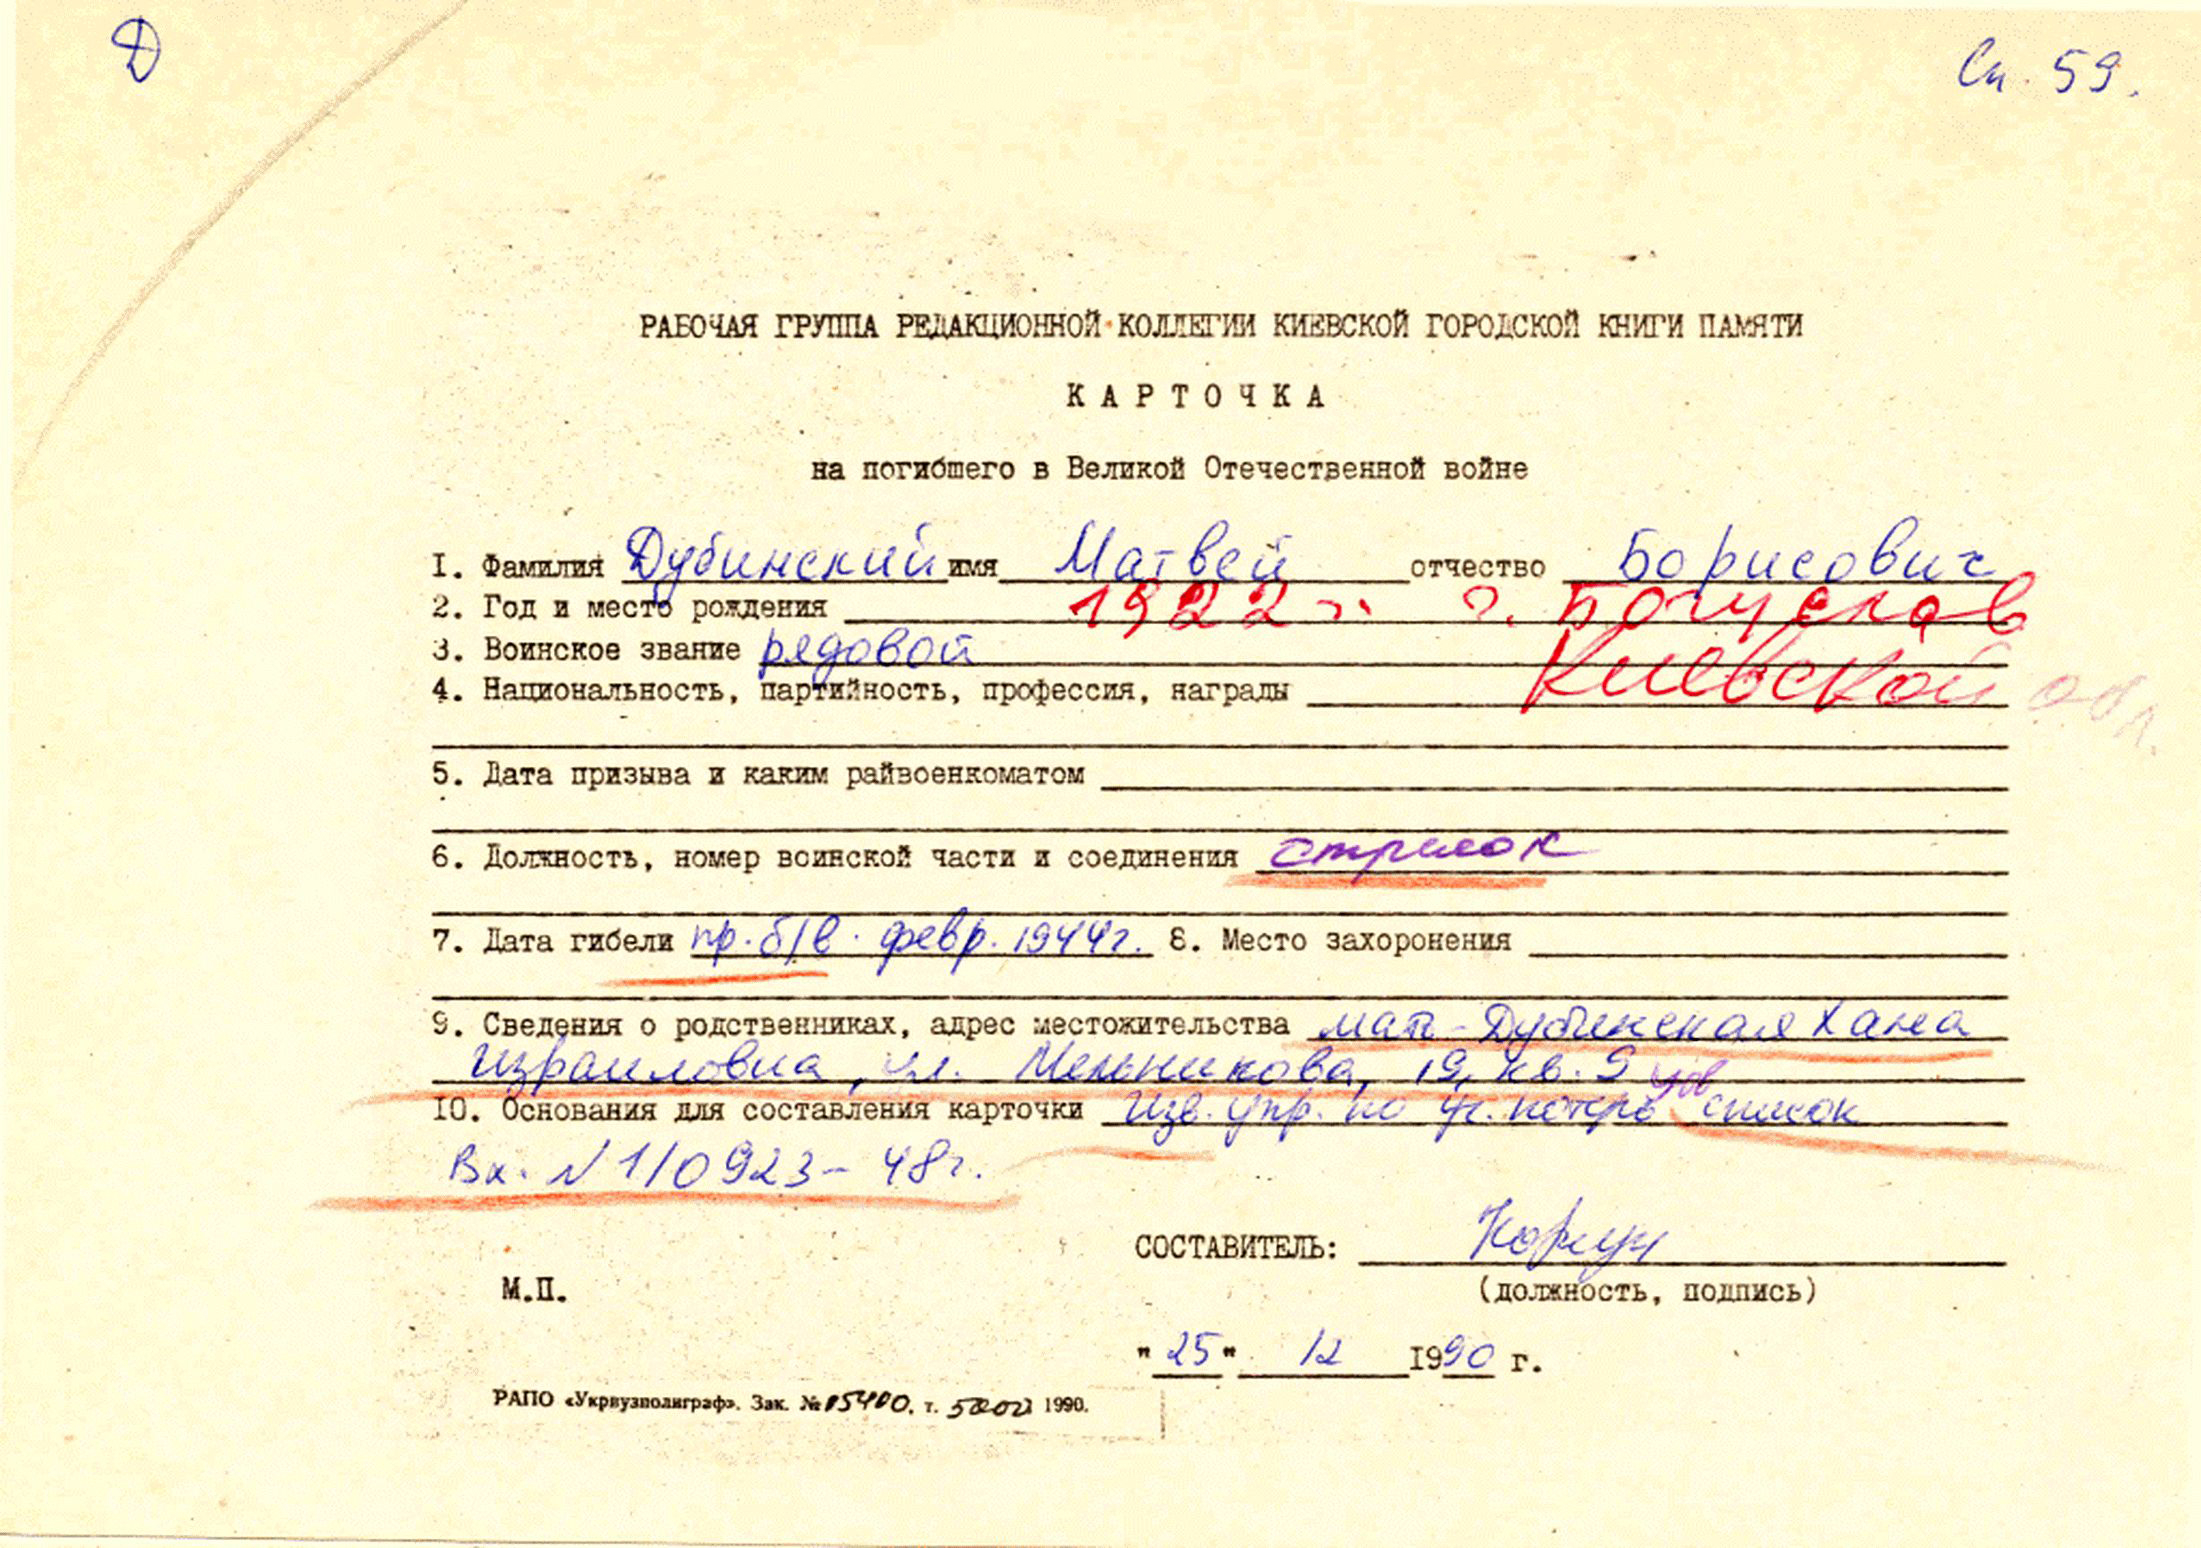 Д
Сп. 59.
РАБОЧАЯ ГРУППА РЕДАКЦИОННОЙ КОЛЛЕГИИ КИЕВСКОЙ ГОРОДСКОЙ КНИГИ ПАМЯТИ
КАРТОЧКА
на погибшего в Великой Отечественной войне
I. Фамилия Дубинский имя Матвей отчество Борисович
2. Год и место рождения 1922 г. г. Богуслав
3. Воинское звание рядовой Киевской обл.
4. Национальность, партийность, профессия, награды
5. Дата призыва и каким райвоенкоматом
6. Должность, номер воинской части и соединения стрелок
7. Дата гибели пр. б/в. февр. 1944г. 8. Место захоронения
9. Сведения о родственниках, адрес местожительства мать-Дубинская Хана
Израиловна, ул. Мельникова, 19, кв. 9
10. Основания для составления карточки Изв. упр. по уч. потерь список
Вх. N 1/0923-48г.
СОСТАВИТЕЛЬ:
М.П.
(должность, подпись)
"25" 12 1990 г.
РАПО «Укрвузполиграф». Зак. № 05400. т. 5000 1990.